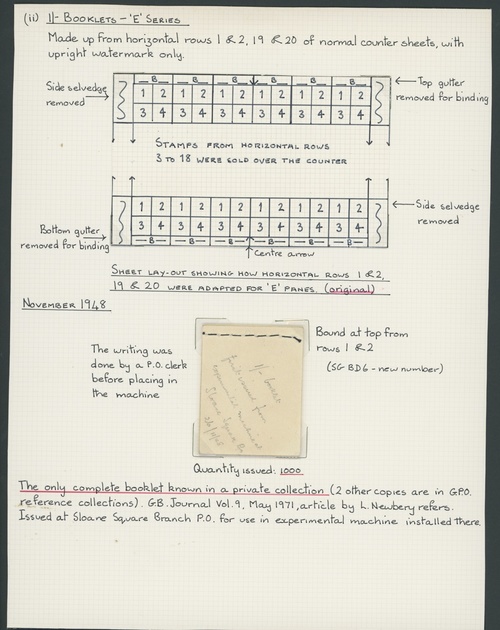 (ii) 1/- BOOKLETS - 'E' SERIES
Made up from horizontal rows 1 & 2, 19 & 20 of normal counter sheets, with
upright watermark only.
Side selvedge
removed
B B B B B B
1 2 1 2 1 2 1 2 1 2 1 2
3 4 3 4 3 4 3 4 3 4 3 4
Top gutter
removed for binding
STAMPS FROM HORIZONTAL ROWS
3 TO 18 WERE SOLD OVER THE COUNTER
1 2 1 2 1 2 1 2 1 2 1 2
3 4 3 4 3 4 3 4 3 4 3 4
B B B B B B
Side selvedge
removed
Bottom gutter
removed for binding
Centre arrow
SHEET LAY-OUT SHOWING HOW HORIZONTAL ROWS 1 & 2,
19 & 20 WERE ADAPTED FOR 'E' PANES. (original)
NOVEMBER 1948
The writing was
done by a P.O. clerk
before placing in
the machine
1/- booklet
from
experimental machine
Sloane Square
Bound at top from
rows 1 & 2
(SG BD6 - new number)
Quantity issued: 1000
The only complete booklet known in a private collection (2 other copies are in G.P.O.
reference collections). G.B. Journal Vol. 9, May 1971, article by L. Newbery refers.
Issued at Sloane Square Branch P.O. for use in experimental machine installed there.